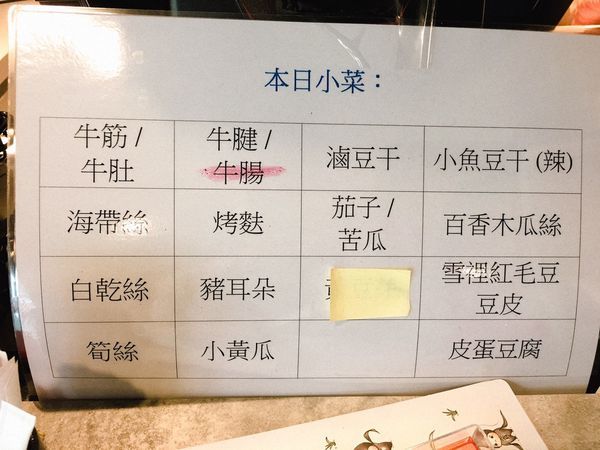 本日小菜：
牛筋 /
牛肚
牛腱 /
牛腸
滷豆干
小魚豆干 (辣)
海帶絲
烤麩
茄子 /
苦瓜
百香木瓜絲
白乾絲
豬耳朵
雪裡紅毛豆
豆皮
筍絲
小黃瓜
皮蛋豆腐